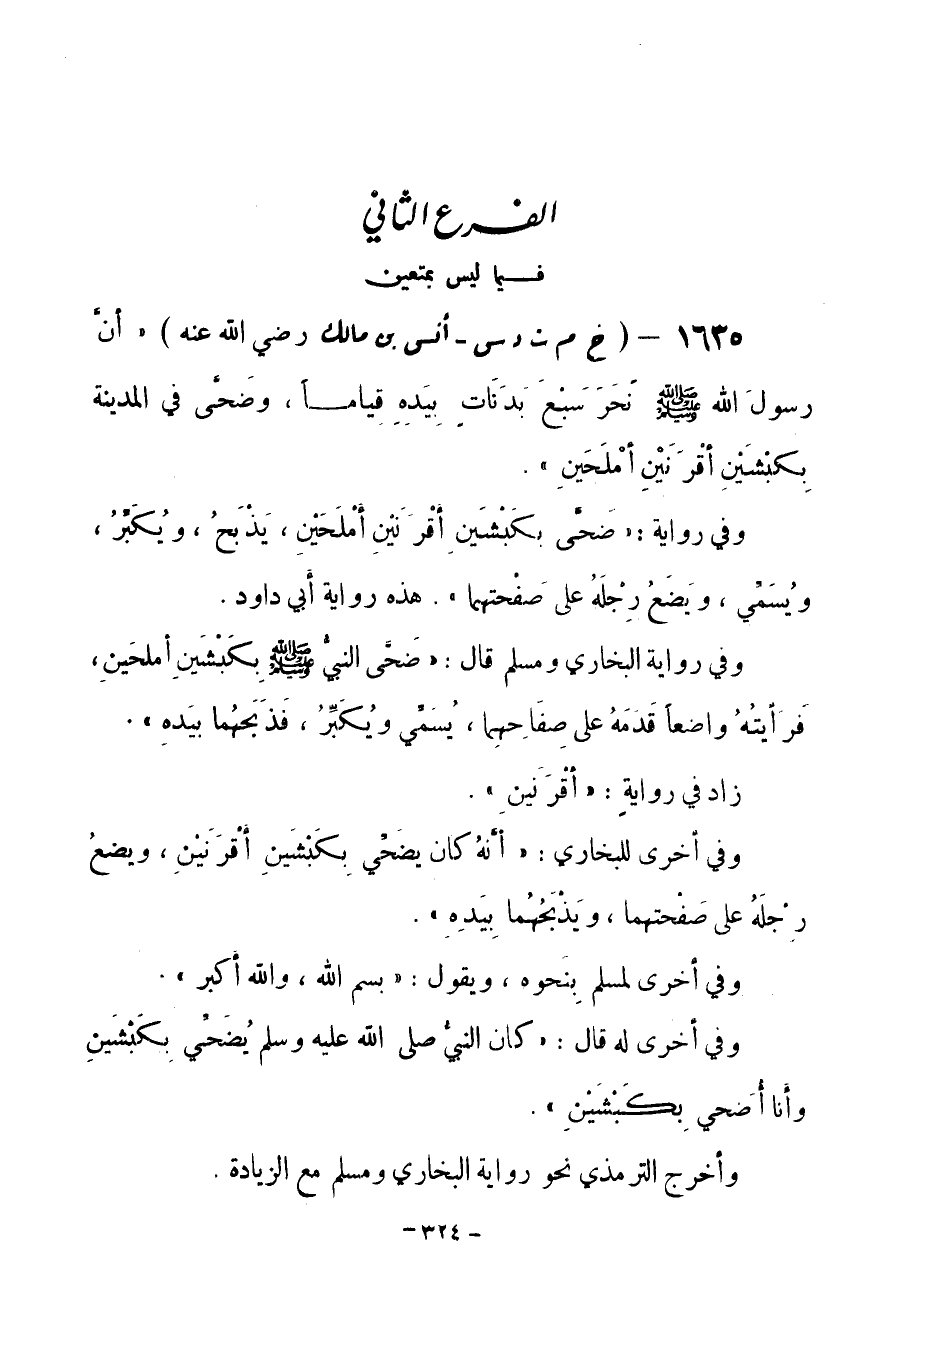 الفرع الثاني
فيما ليس بمتعين
١٦٣٥ – ( خ م ت د س - أنس بن مالك رضي الله عنه ) « أنَّ
رسولَ الله ﷺ نَحَرَ سَبْعَ بَدَنَاتٍ بِيَدِهِ قِيامـاً ، وضَحَّى في المدينة
بِكَبْشَيْنِ أقْرَنَيْنِ أمْلَحَينِ » .
وفي رواية : « ضَحَّى بِكَبْشَينِ أقْرَنَيْنِ أمْلَحَيْنِ ، يَذْبَحُ ، ويُكَبِّرُ ،
ويُسَمِّي ، ويَضَعُ رِجْلَهُ على صَفْحتهما » . هذه رواية أبي داود .
وفي رواية البخاري ومسلم قال : « ضَحَّى النبيُّ ﷺ بِكَبْشَينِ أملحَينِ ،
فَرَأيتُهُ واضعاً قَدَمَهُ على صِفَاحِهِما ، يُسَمِّي ويُكَبِّرُ ، فَذَبَحَهُما بيَدهِ » .
زاد في روايةٍ : « أقْرَنَينِ » .
وفي أخرى للبخاري : « أنَّهُ كان يضَحِّي بِكَبْشَينِ أقْرَنَيْنِ ، ويضعُ
رِجْلَهُ على صَفْحتهما ، ويَذْبَحُهُما بِيَدِهِ » .
وفي أخرى لمسلم بِنَحوه ، ويقول : « بسم الله ، والله أكبر » .
وفي أخرى له قال : « كان النبيُّ صلى الله عليه وسلم يُضَحِّي بِكَبْشَينِ
وأنا أُضَحي بِكَبْشَيْنِ » .
وأخرج الترمذي نحو رواية البخاري ومسلم مع الزيادة .
- ٣٢٤ -